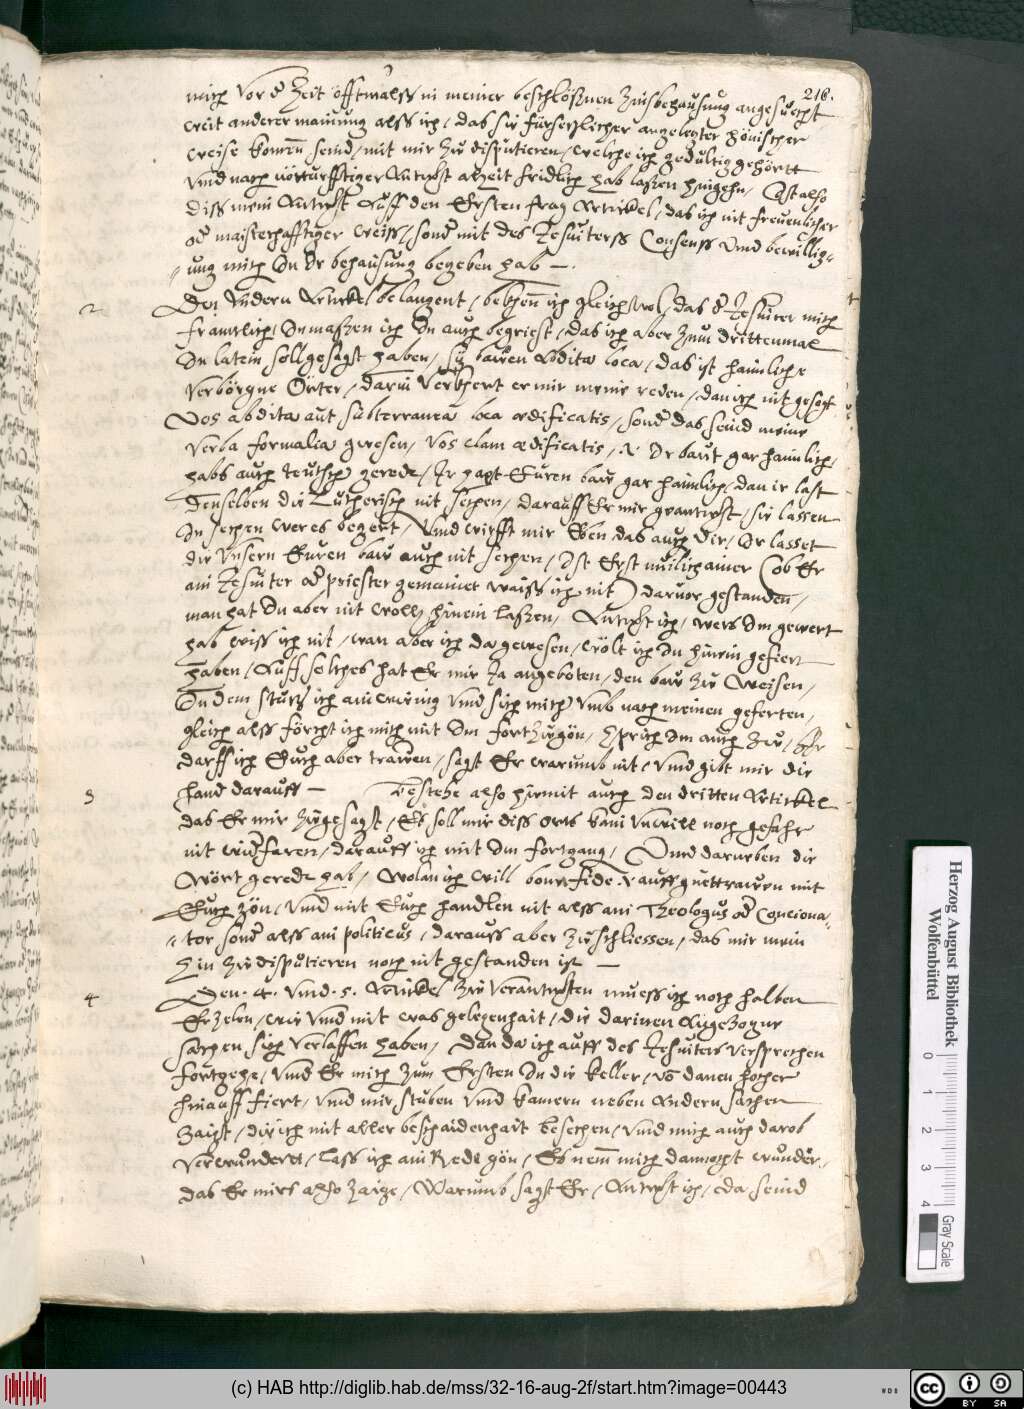 216.
mich vor d Zeit öfftmalss in meiner beschlossnen Zinsbehausung angesucht
weit anderer mainung alss ich / das sie fürsetzlicher angelegter hönischer
weise komen seind / mit mir zu disputieren / welche ich gedultig gehörtt
vnd nach nottürfftiger Antwort alzeit fridlich hab lassen hingehn / Ist also
diss mein Antwort auff den Ersten frag Artickel / das ich nit freuenlicher
od maisterhafftiger weiss / sond mit des Jesuiterss Consenss vnd bewillig=
=ung mich In Ir behausung begeben hab —.
2 Den Andern Artickel belangent / bekhenn ich gleich wol / das d Jesuiter mich
franntlich / Inmassen ich In auch begriest / das ich aber zum drittenmal
In latein soll gesagt haben / sy bawen abdita loca / das ist haimliche
verborgne Örter / darin verkhert er mir meine reden / dan ich nit gesagt
Vos abdita aut subterranea loca ædificatis / sond das seind meine
verba formalia gwesen / Vos clam ædificatis / Ir baut gar haimlich /
habs auch teutsch geredt / Ir habt Euren baw gar haimlich / dan ir last
denselben die Lutherisch nit sechen / darauff Er mir geantwort / sie lassen
In sechen wer es begert / Vnd wirfft mir Eben das auch für / Ir lasset
die Vnsern Euren baw auch nit sechen / Ist Erst neulich ainer (ob Er
ain Jesuiter od priester gemainet waiss ich nit) daruor gestanden /
man hat In aber nit wollen hinein lassen / Antwort ich / wers Im gewert
hab waiss ich nit / wan aber ich da gewesen / wölt ich In hinein gefiert
haben / Auff solches hat Er mir Ja angeboten / den baw zu Weisen /
In dem stutz ich ain wenig vnd sich mich vmb nach meinen geferten /
gleich alss förcht ich mich mit Im fort zugön / sprich Im auch zu /
darff ich Euch aber trawen / sagt Er warumb nit / vnd gibt mir die
hand darauff —
3 bestehe also hiemit auch den dritten Artickel
das Er mir zugesagt / Es soll mir diss orts kain Vnwill noch gefahr
nit widfaren / darauff ich mit Im fortgang / Vnd darneben die
Wort geredt hab / Wolan ich will bona fide auff guettrawen mit
Euch gön / vnd mit Euch handlen nit alss ain Theologus od Conciona=
=tor sond alss ain politicus / darauss aber zuschliessen / das mir mein
Sin zu disputieren noch nit gestanden ist —
4 Den .4. vnd .5. Artickel zu verantworten muess ich noch halben
Erzelen / wie vnd mit was gelegenhait / die darinen Angezogne
sachen sich verlaffen haben / Dan da ich auff des Jesuiters versprechen
fortgehe / vnd Er mich zum Ersten In die keller / vo danen hocher
hinauff fiert / vnd mir stuben vnd kamern neben Andern sachen
zaigt / die ich mit aller beschaidenhait besechen / vnd mich auch darob
verwundert / lass ich ain Rede gön / Es nem mich dannocht wunder /
das Er mirs also zaige / Warumb sagt Er / Antwort ich / da seind
Herzog August Bibliothek
Wolfenbüttel
0 1 2 3 4
Gray Scale
(c) HAB http://diglib.hab.de/mss/32-16-aug-2f/start.htm?image=00443
WDB
cc BY SA